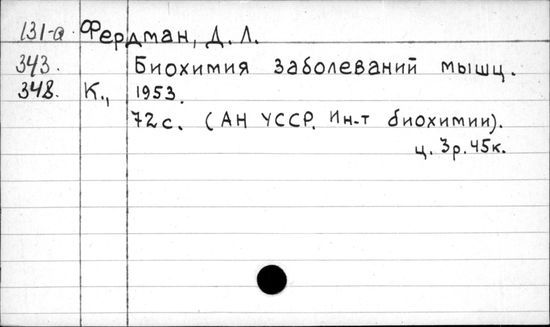 131-а Фердман, Д. Л.
343. Биохимия заболеваний мышц.
348. К., 1953.
72с. (АН УССР. Ин-т биохимии).
ц. 3р. 45к.